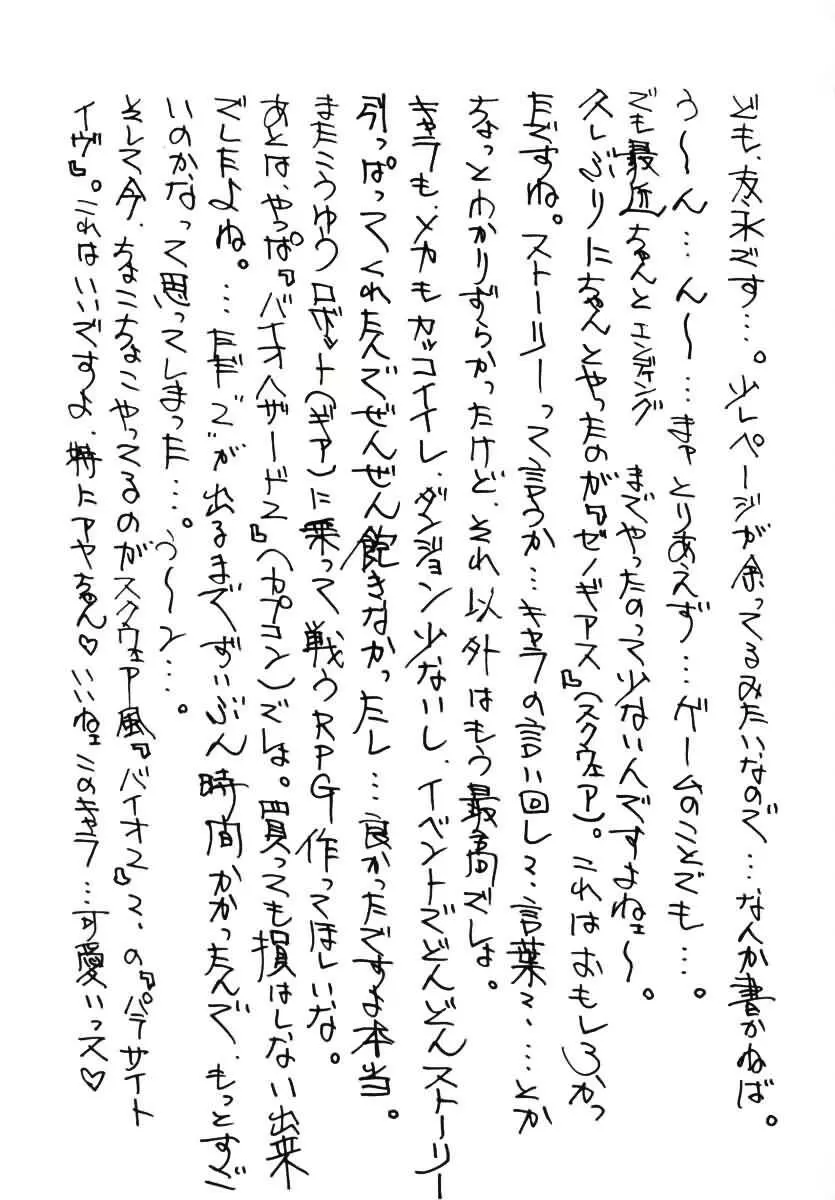 ども、友永です…。少しページが余ってるみたいなので…なんか書かねば。
う〜ん…ん〜…まァとりあえず…ゲームのことでも…。
でも最近ちゃんとエンディングまでやったのって少ないんですよねェ〜。
久しぶりにちゃんとやったのが『ゼノギアス』(スクウェア)。これはおもしろかっ
たですね。ストーリーって言うか…キャラの言い回して、言葉て、…とか
ちょっとわかりずらかったけど、それ以外はもう最高でしょ。
キャラも、メカもカッコイイし、ダンジョン少ないし、イベントでどんどんストーリー
引っぱってくれたんでぜんぜん飽きなかったし…良かったですよ本当。
またこうゆうロボット(ギア)に乗って戦うRPG作ってほしいな。
あとは、やっぱ『バイオハザード2』(カプコン)でしょ。買っても損はしない出来
でしたよね。…ただ"2"が出るまでずいぶん時間かかったんで、もっとすご
いのかなって思ってしまった…。う〜ン…。
そして今、ちょこちょこやってるのがスクウェア風『バイオ2』て、の『パラサイト
イヴ』。これはいいですよ、特にアヤちゃん♡いいねェこのキャラ…可愛いっス♡